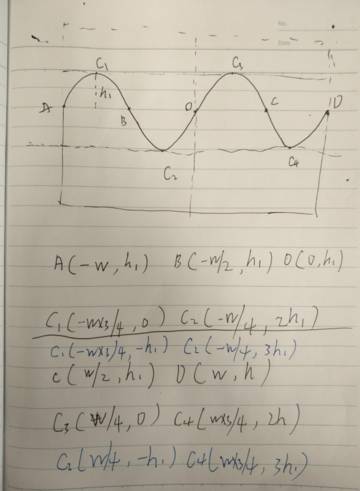 C₁ C₃
A h₁ B O C D
C₂ C₄
A(-w, h₁) B(-w/2, h₁) O(0, h₁)
C₁(-w×3/4, 0) C₂(-w/4, 2h₁)
C₁(-w×3/4, -h₁) C₂(-w/4, 3h₁)
C(w/2, h₁) D(w, h)
C₃(w/4, 0) C₄(w×3/4, 2h)
C₂(w/4, -h₁) C₄(w×3/4, 3h₁)